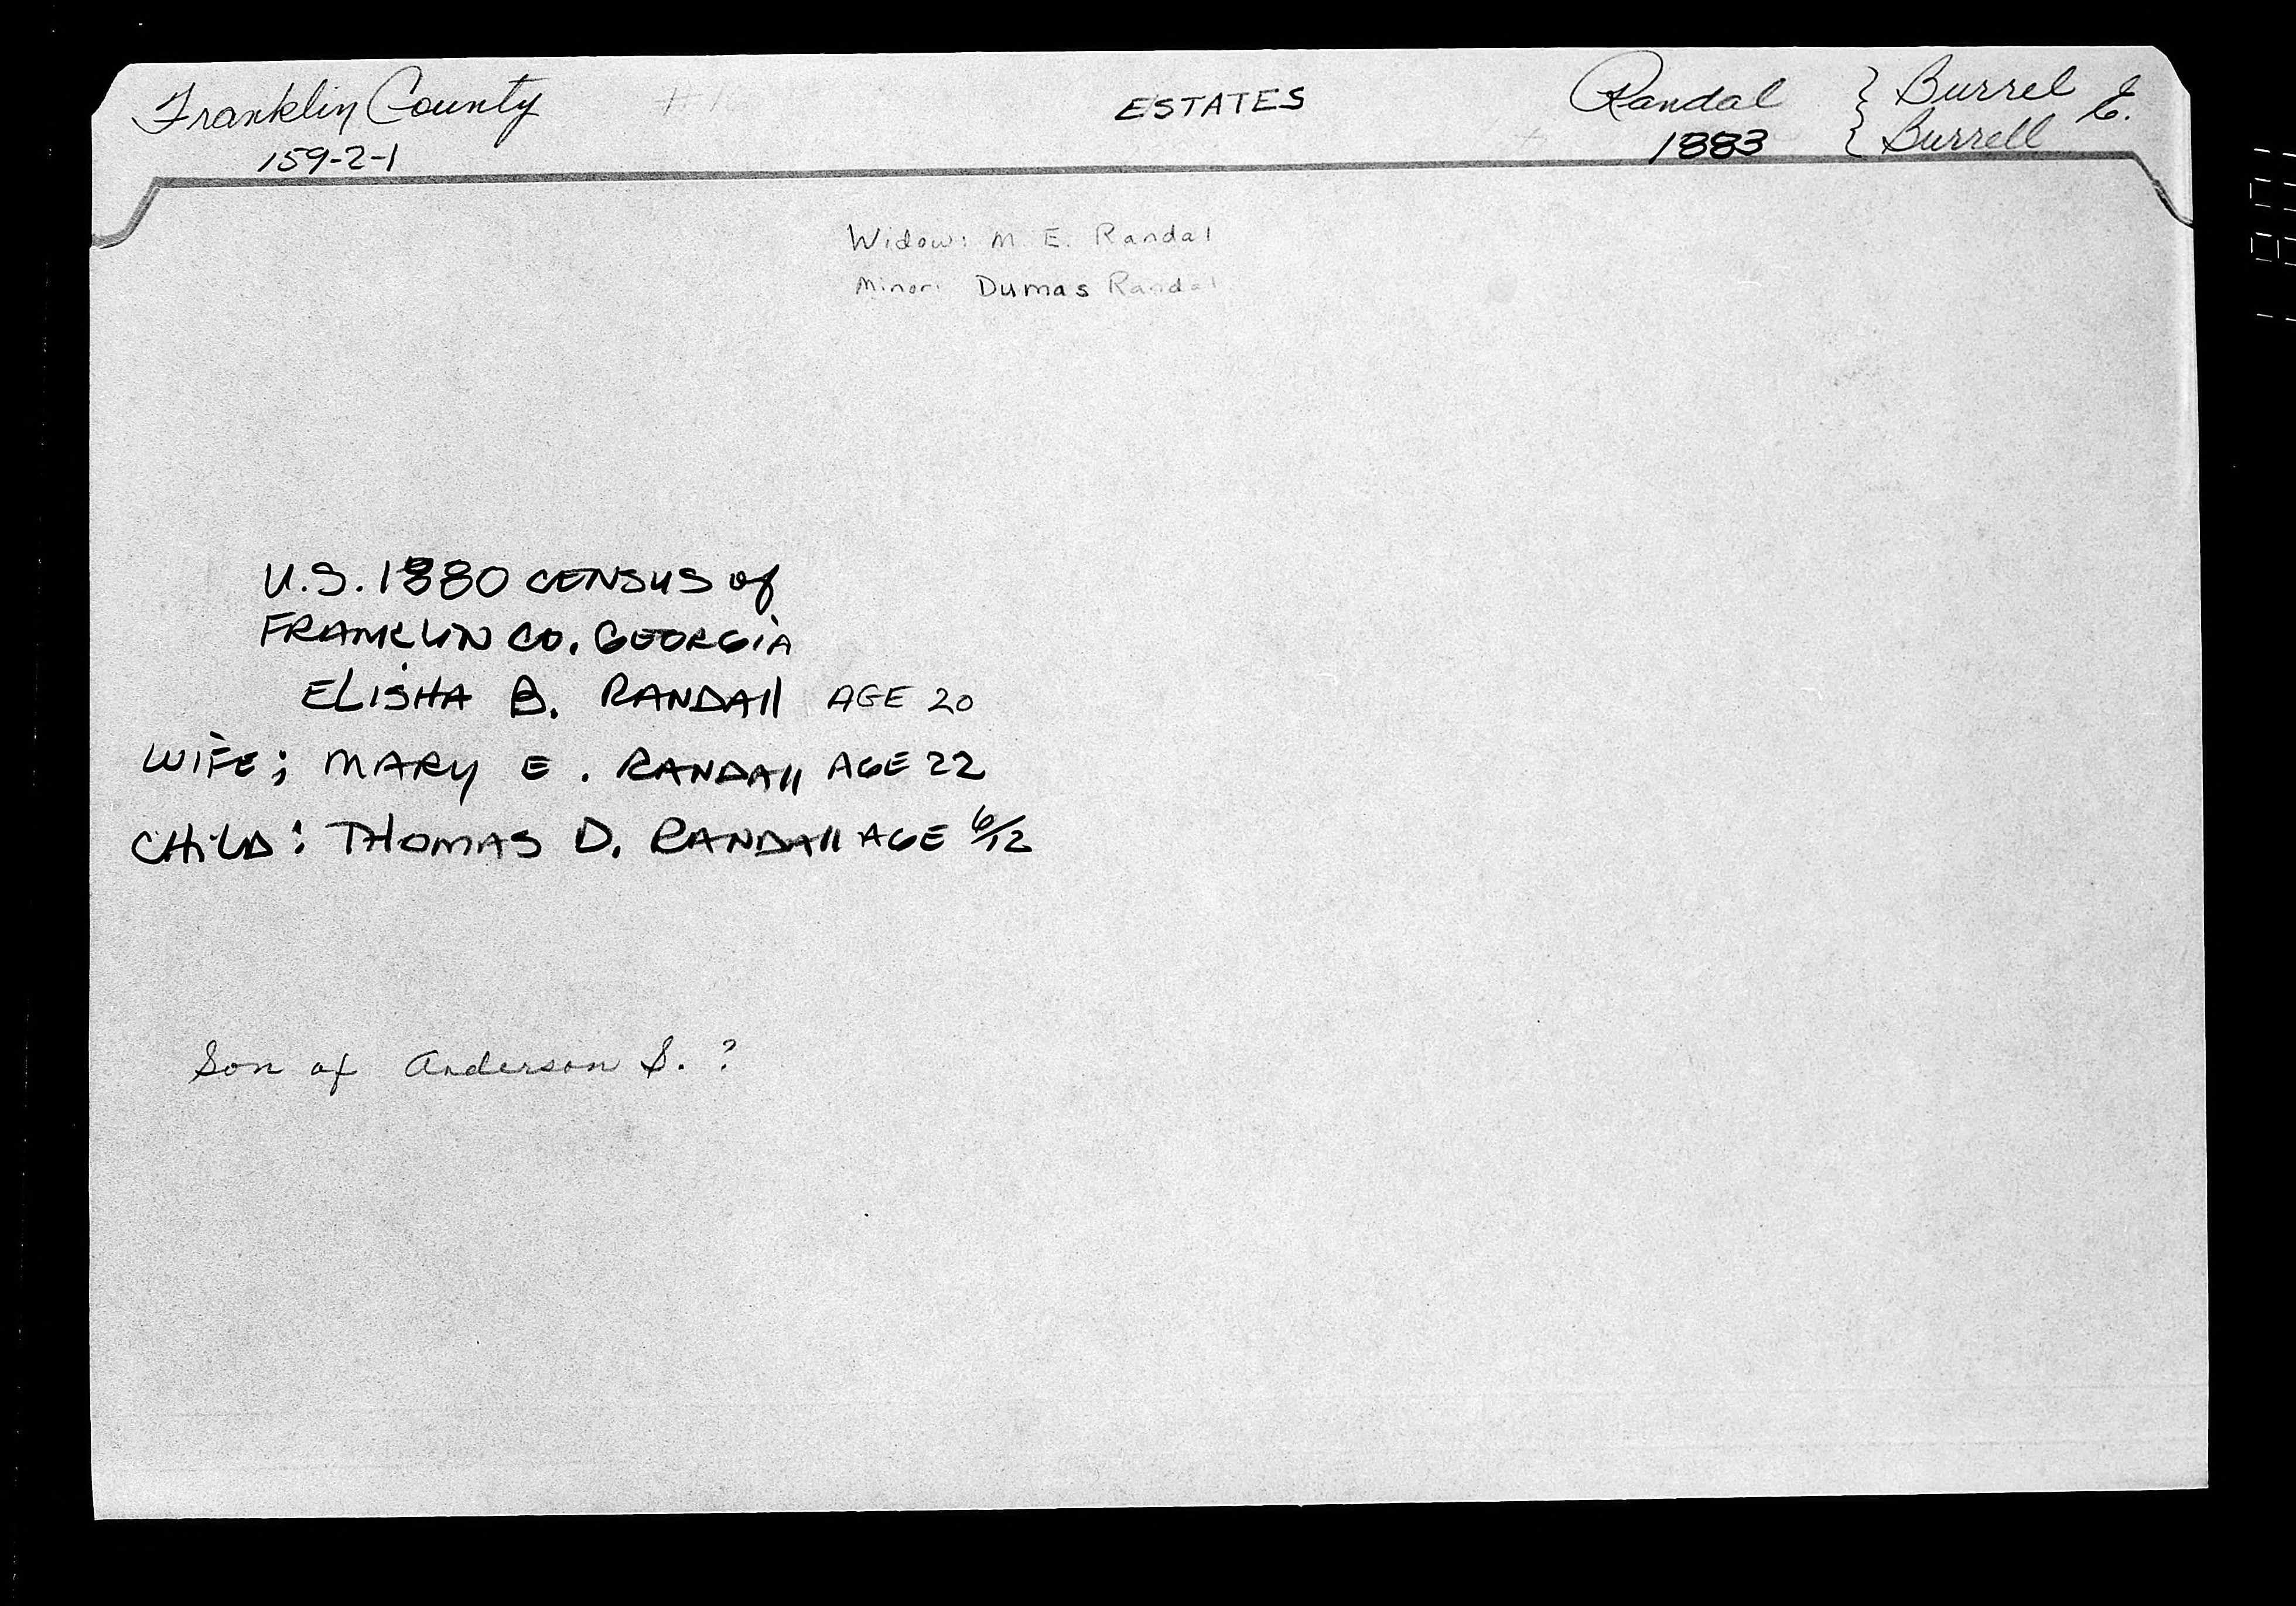 Franklin County
159-2-1
#1
ESTATES
Randal
1883
} Burrel E.
{ Burrell
Widow: M. E. Randal
Minor: Dumas Randal
U.S. 1880 CENSUS of
FRANKLIN CO. GEORGIA
ELISHA B. RANDAll AGE 20
WIFE; MARY E. RANDAll AGE 22
CHILD: THOMAS D. RANDAll AGE 6/12
Son of Anderson S. ?